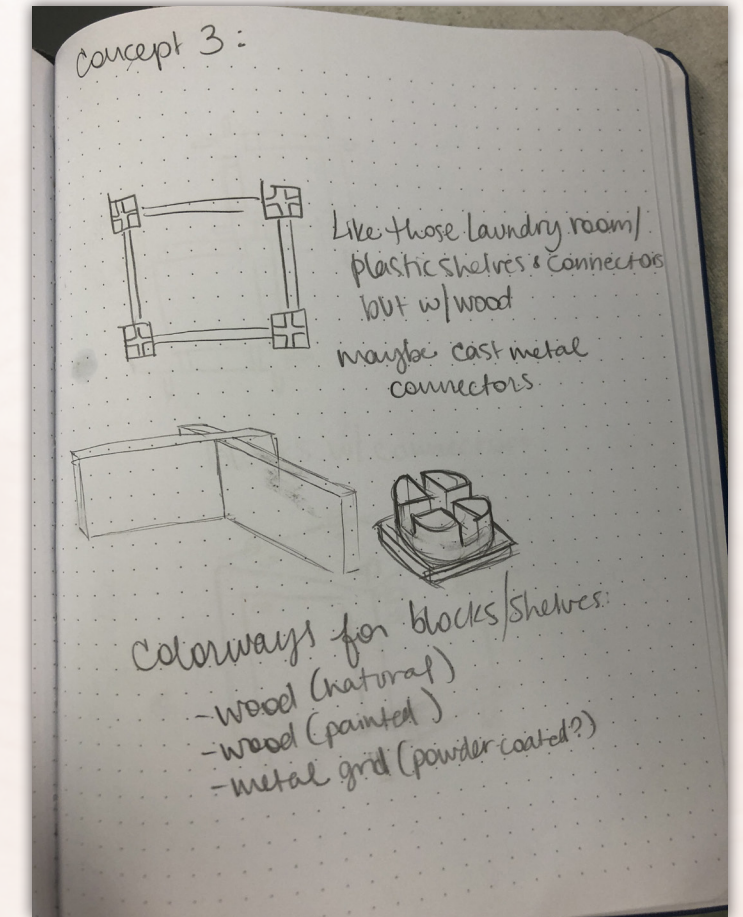 Concept 3:
Like those laundry room/
plastic shelves & connectors
but w/wood
maybe cast metal
connectors.
Colorways for blocks/shelves:
-wood (natural)
-wood (painted)
-metal grid (powder coated?)